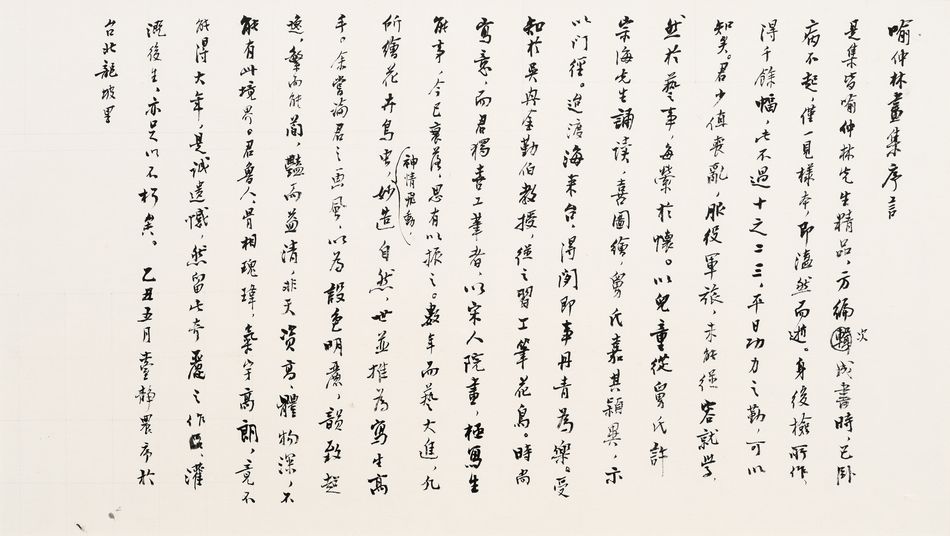 喻仲林畫集序言
是集皆喻仲林先生精品，方編次成書時，已卧
病不起，僅一見樣本，即溘然而逝。身後檢所作，
得千餘幅，此不過十之二三，平日功力之勤，可以
知矣。君少值喪亂，服役軍旅，未能從容就學，
然於藝事，每縈於懷。以兒童從舅氏許
宗海先生誦讀，喜圖繪，舅氏嘉其穎異，示
以門徑。迨渡海來台，得閒即事丹青為樂。受
知於吳興金勤伯教授，從之習工筆花鳥。時尚
寫意，而君獨喜工筆者，以宋人院畫，極寫生
能事，今已衰落，思有以振之。數年而藝大進，凡
所繪花卉鳥虫，神情飛動，妙造自然，世並推為寫生高
手。余嘗論君之画風，以為設色明麗，韻致超
逸，繁而能簡，豔而益清，非天資高，體物深，不
能有此境界。君魯人，骨相瑰瑋，氣宇高朗，竟不
能得大年，是誠遺憾，然留此奇麗之作，灌
溉後生，亦足以不朽矣。　乙丑五月臺靜農序於
台北龍坡里